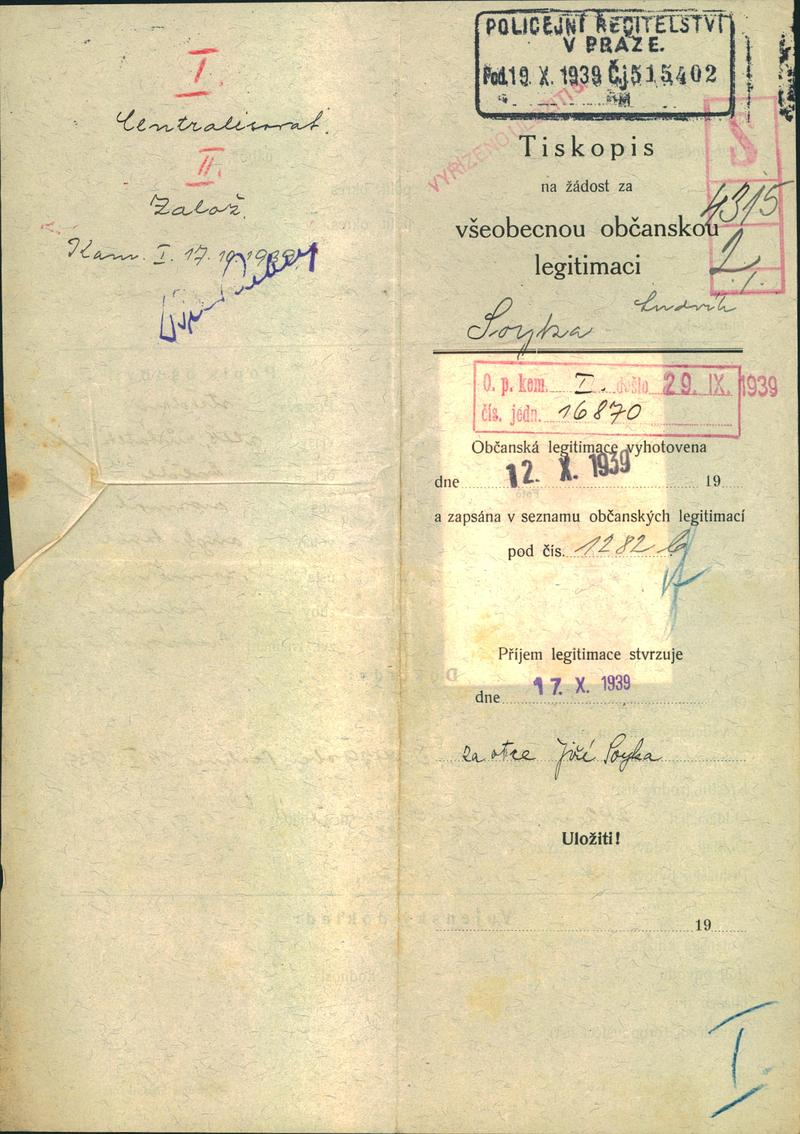 I.
Centralisovat.
II.
Založ.
Kom. I. 17. 10. 1939
POLICEJNÍ ŘEDITELSTVÍ
V PRAZE.
Pod. 19. X. 1939 Čj 515402
VYŘÍZENO
S
4315
2
Tiskopis
na žádost za
všeobecnou občanskou
legitimaci
Soyka Ludvík
O. p. kom. I. došlo 29. IX. 1939
čís. jedn. 16870
Občanská legitimace vyhotovena
dne 12. X. 1939 19
a zapsána v seznamu občanských legitimací
pod čís. 1282
Příjem legitimace stvrzuje
dne 17. X. 1939
za otce Jiří Soyka
Uložiti!
19
I.